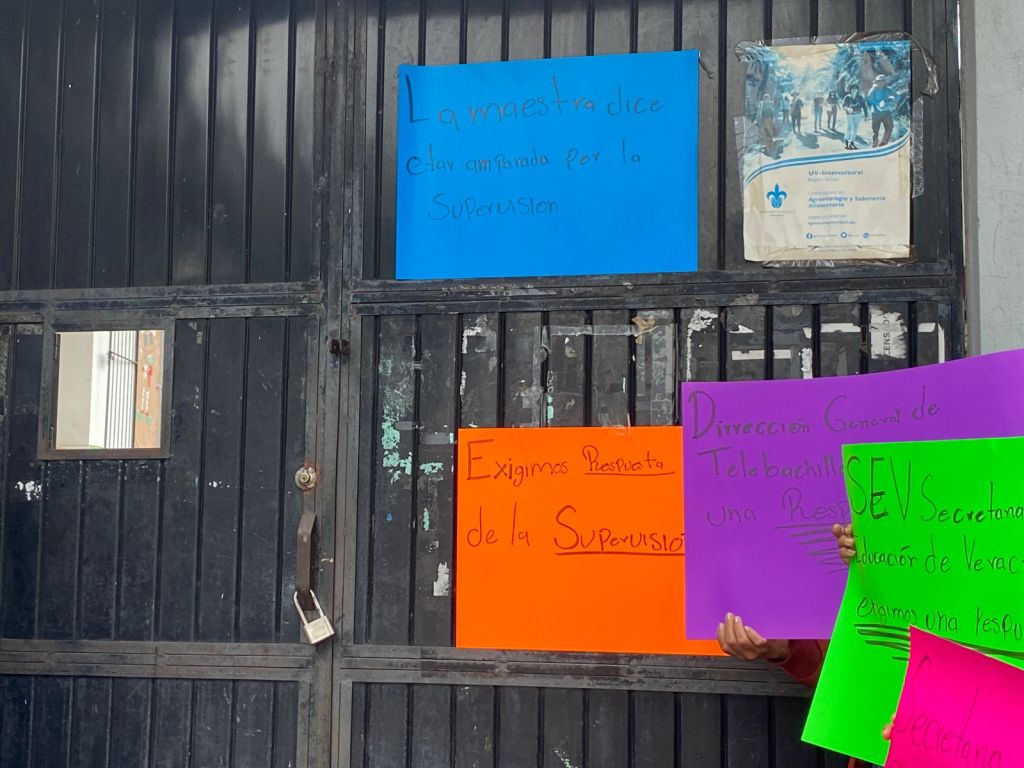 La maestra dice
etar amparada por la
Supervision
UV-Intercultural
Agroecología y Soberanía
Alimentaria
Exigimos Respuesta
de la Supervisio
Dirección General de
Telebachille
una Resp
SEV Secretaria
Educación de Verac
exigimos una respu
Secretario